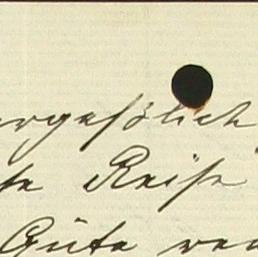 ergeßlich
se Reise
Güte